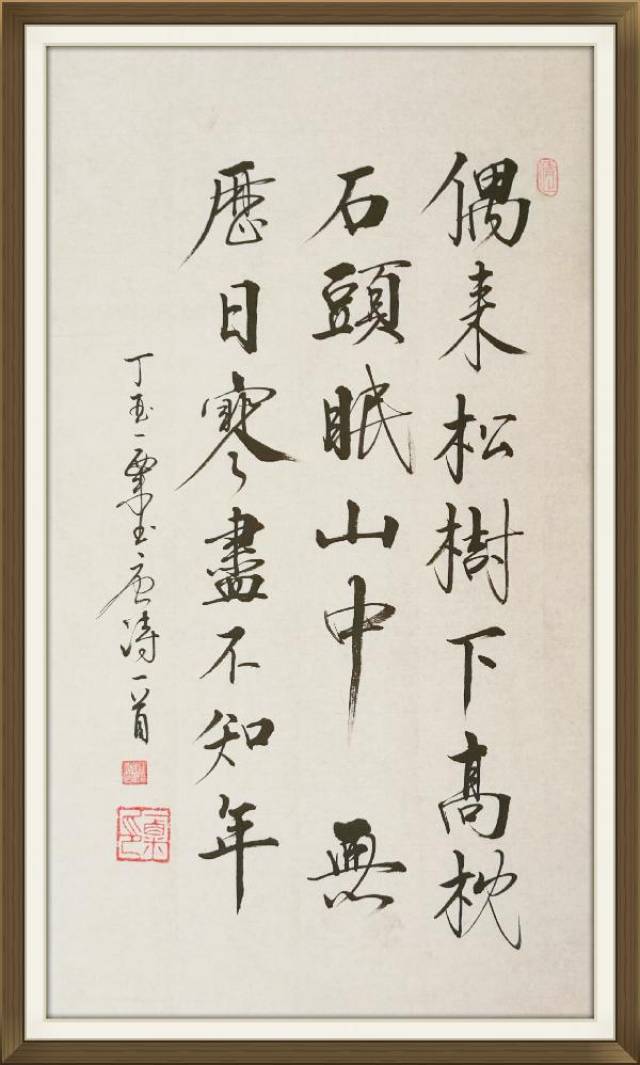 偶来松樹下高枕
石頭眠山中無
曆日寒盡不知年
丁酉一粟书唐诗一首